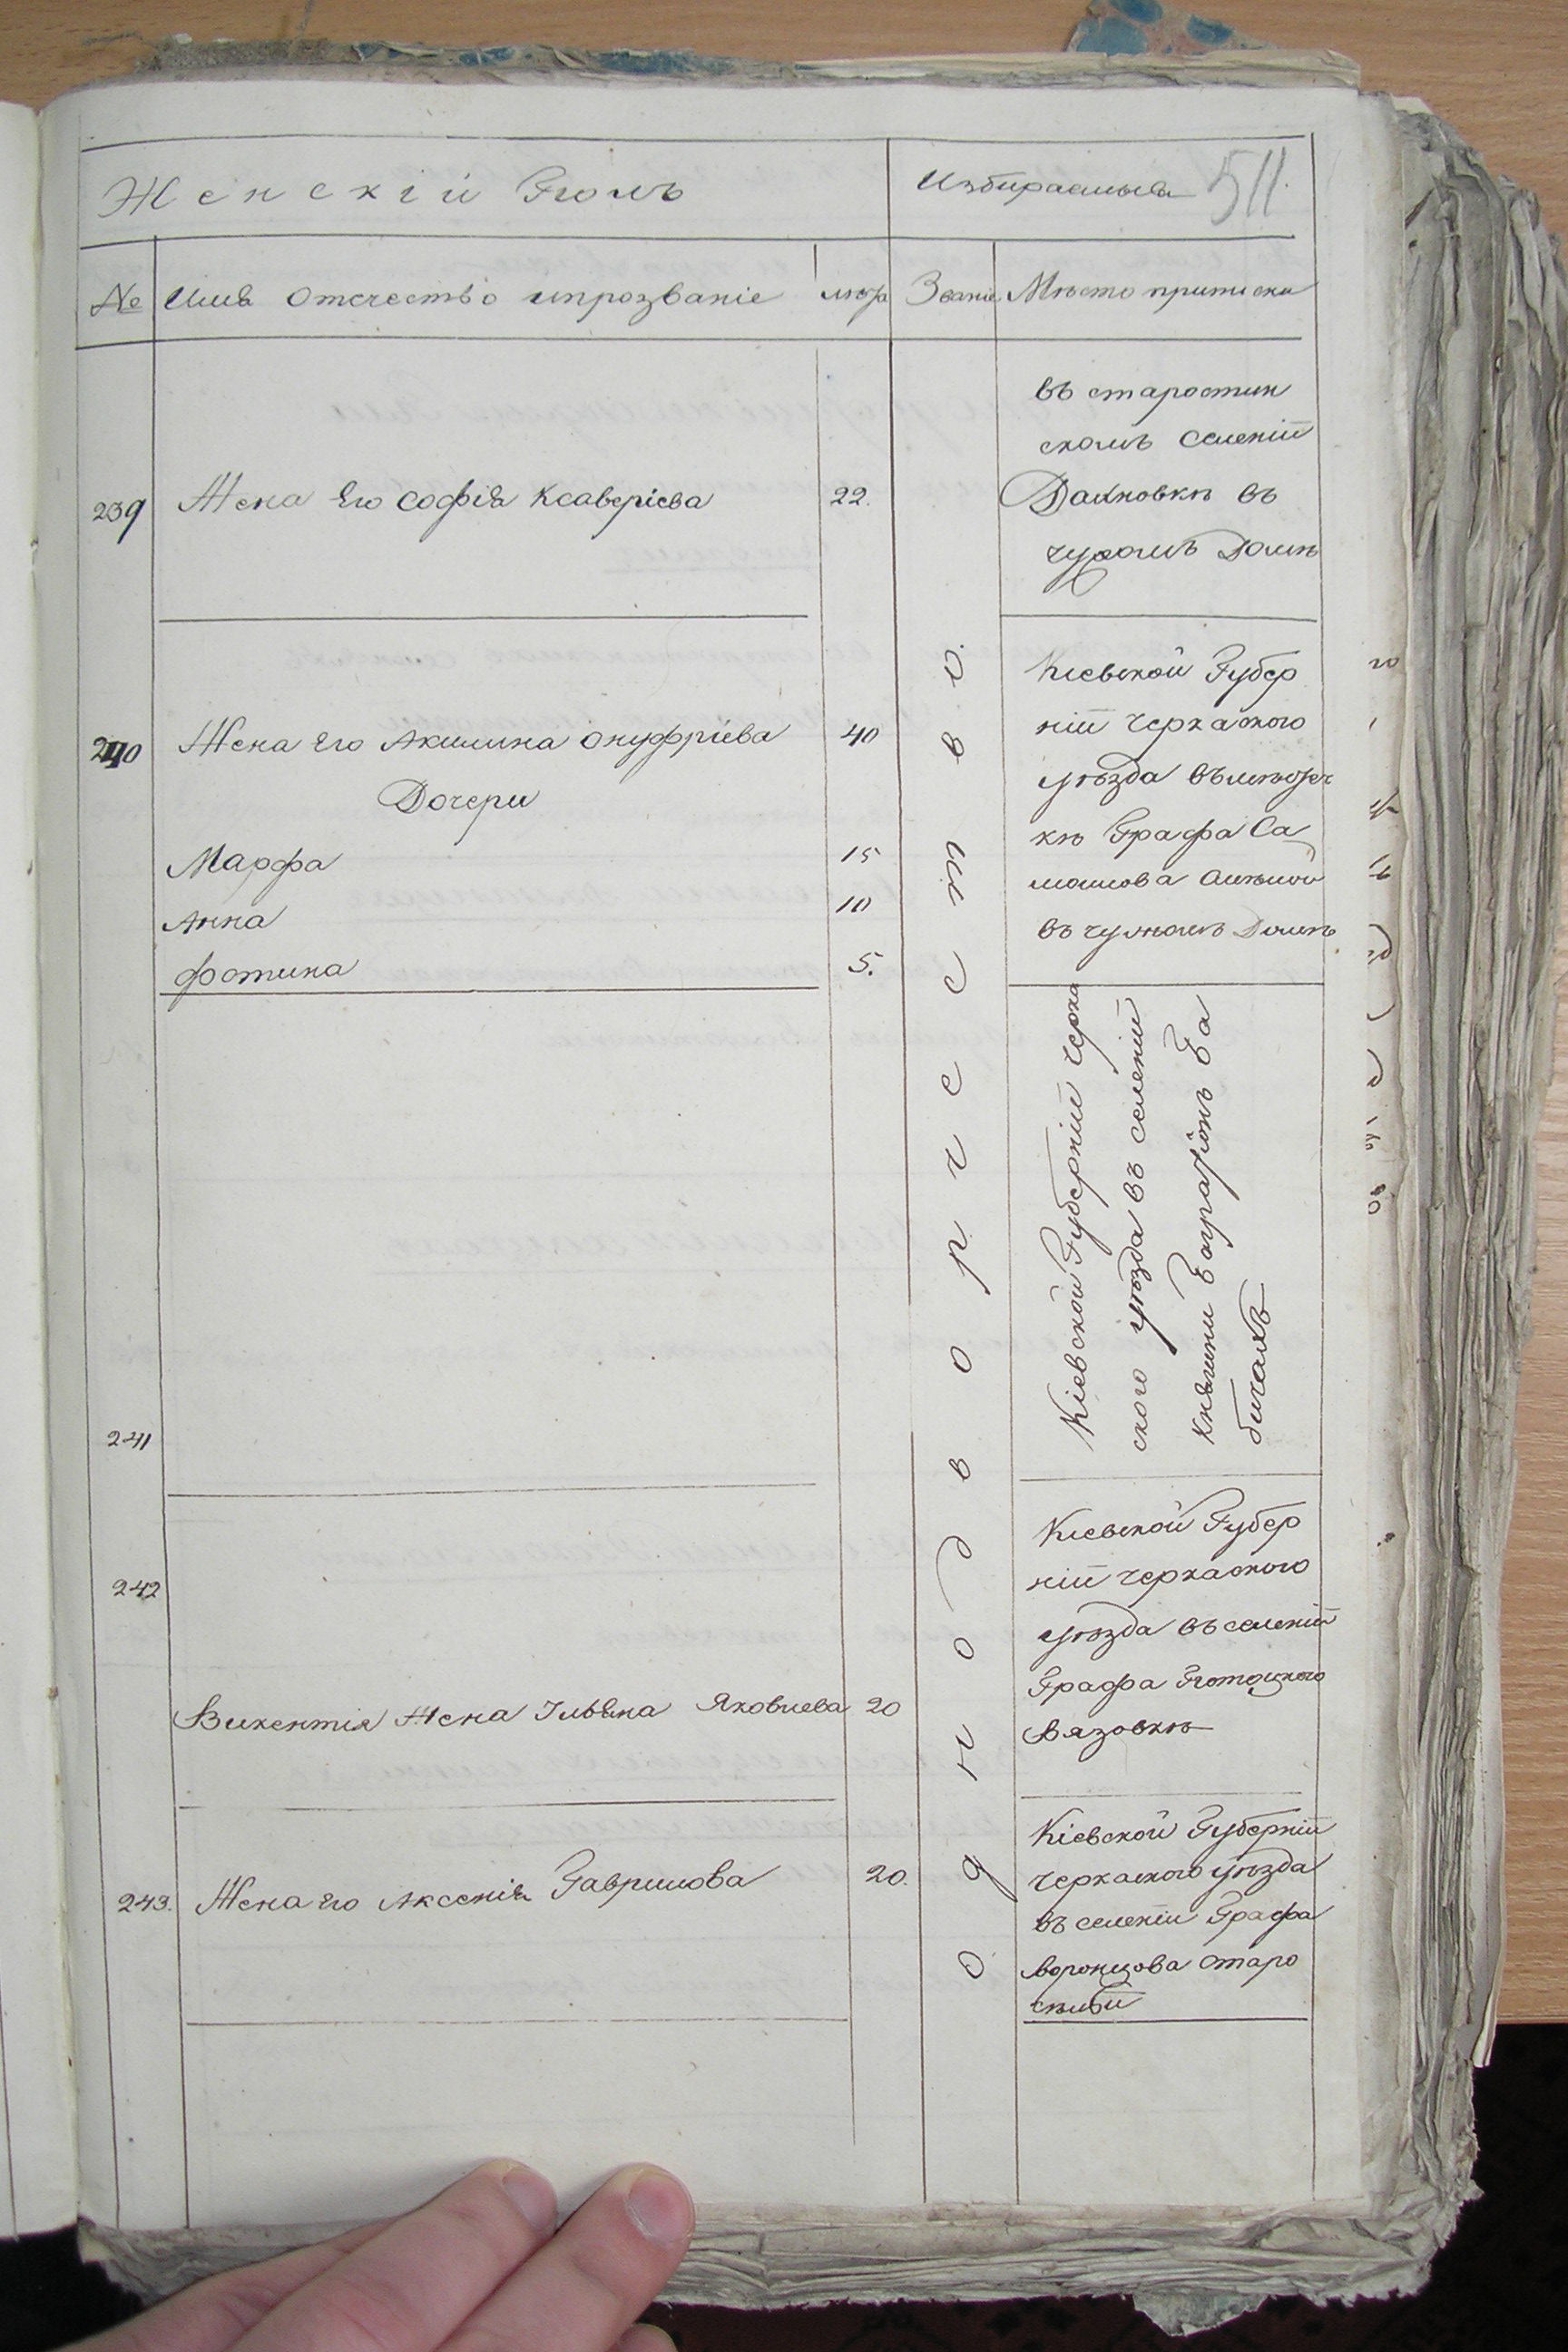 Женскій Полъ
Избираемыя 511.
№ Имя Отечество ипрозваніе
лѣта Званіе Мѣсто приписки
239 Жена Его Софія Ксаверіева 22.
въ старостин
скомъ Селеніи
въ
чужомъ Домѣ
240 Жена Его Акилина Онуфріева 40
Дочери
Марфа 15
Анна 10
Фотина 5.
Кіевской Губер
ніи Черкаского
уѣзда вмѣстеч
кѣ Графа Са
мойлова
въ чужомъ Домѣ
241
Кіевской Губерніи Черка
ского уѣзда въ селеніи
Княгини Ба
бичахъ
242
Викентія Жена Ульяна Яковлева 20
Кіевской Губер
ніи Черкаского
уѣзда въ селеніи
Графа Потоцкого
Вязовкѣ
243. Жена Его Аксенія Гаврилова 20.
Кіевской Губерніи
Черкаского уѣзда
въ селеніи Графа
Воронцова Старо
сельи
Однодворчество.